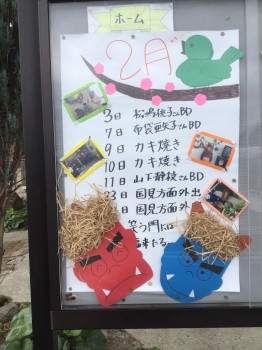 ホーム
2月
3日 松嶋桃子さんBD
7日 布袋亜矢子さんBD
9日 カキ焼き
10日 カキ焼き
11日 山下静枝さんBD
23日 国見方面外出
日 国見方面外
笑う門には
来たる